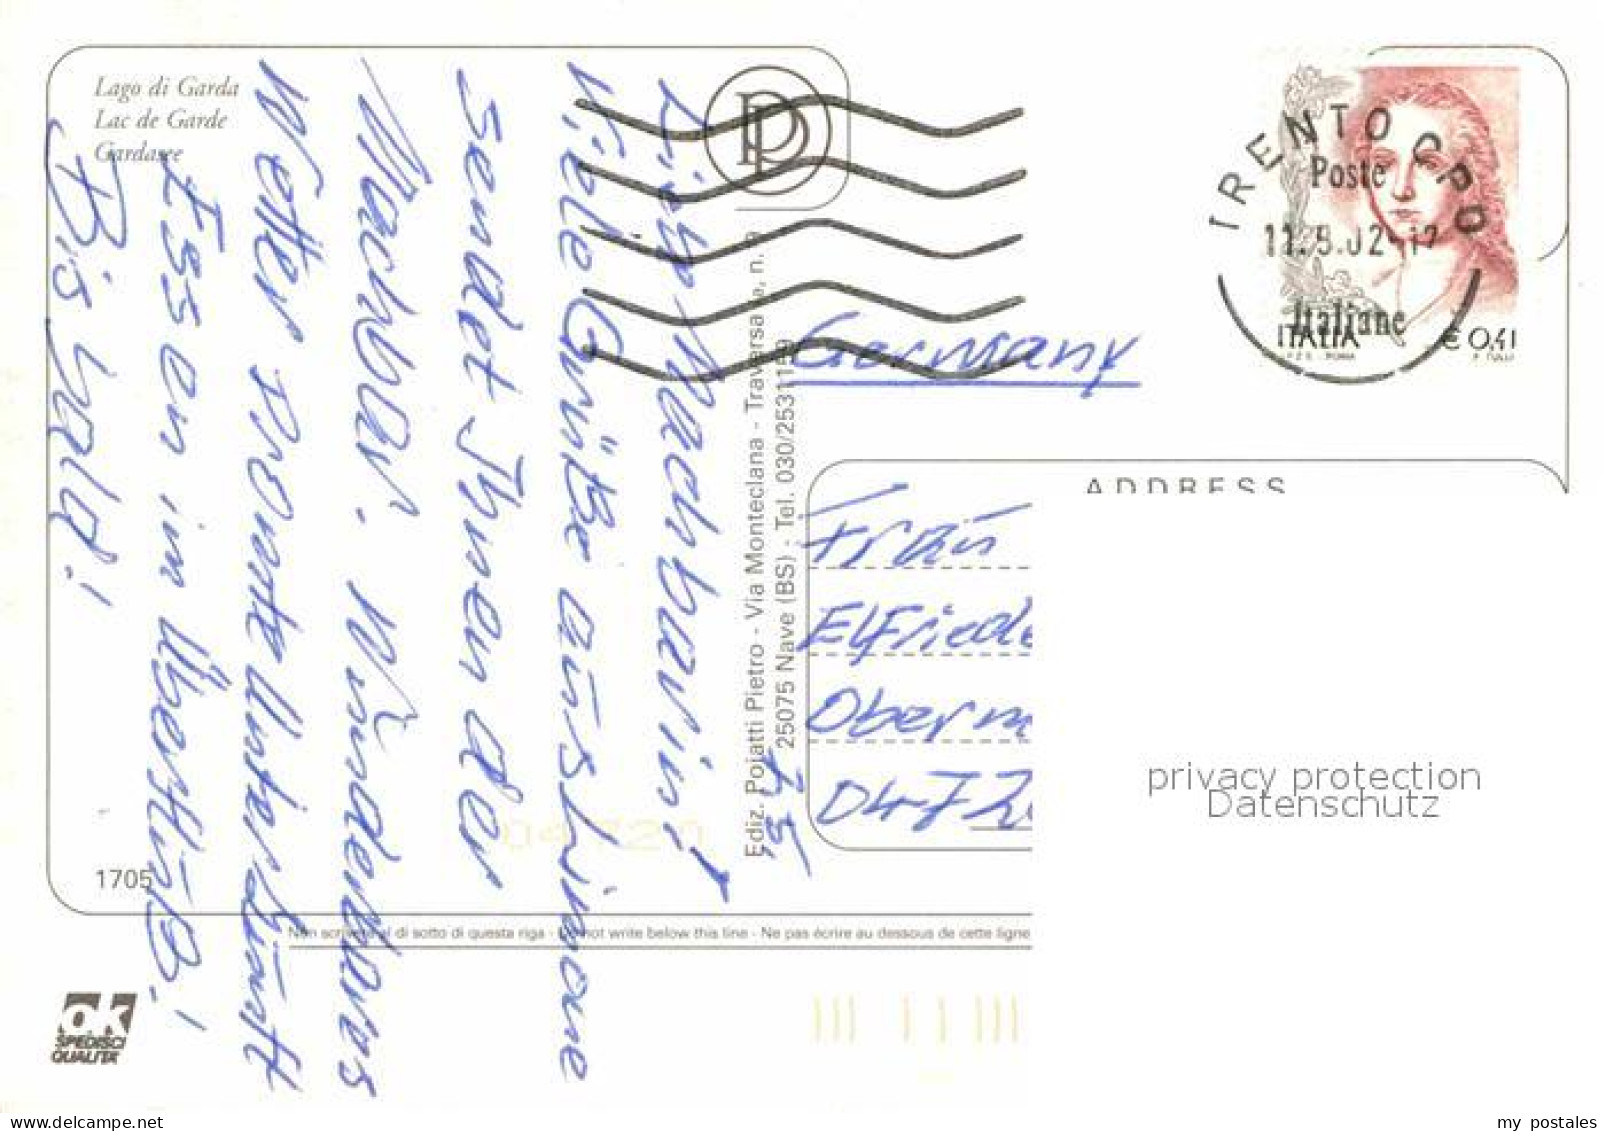 Lago di Garda
Lac de Garde
Gardasee
Liebe Nachbarin!
Viele Grüße aus Limone
sendet Ihnen der
Nachbar. Wunderbares
Wetter prämte Unterkunft
Essen im Überfluß!
Bis bald!
1705
Ediz. Pojatti Pietro - Via Monteclana - Traversa n. 9
25075 Nave (BS) - Tel. 030/2531129
Non scrivere al di sotto di questa riga - Do not write below this line - Ne pas écrire au dessous de cette ligne
ok
SPEDISCI
QUALITA'
TRENTO CPO
11.5.02-17
Poste
Italiane
ITALIA
€ 0,41
I.P.Z.S. ROMA
P. TULLI
Germany
ADDRESS
Frau
Elfriede
Oberm
0472
privacy protection
Datenschutz
my postales